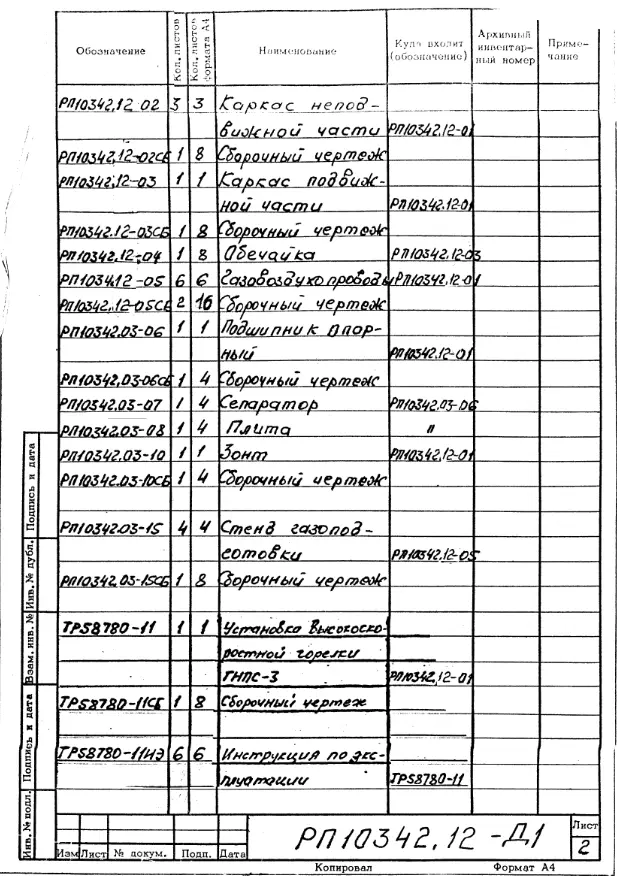 Обозначение Кол. листов Кол. листов формата А4 Наименование Куда входит (обозначение) Архивный инвентарный номер Примечание
РП10342.12-02 3 3 Каркас непод-
вижной части РП10342.12-01
РП10342.12-02СБ 1 8 Сборочный чертеж
РП10342.12-03 1 1 Каркас подвиж-
ной части РП10342.12-01
РП10342.12-03СБ 1 8 Сборочный чертеж
РП10342.12-04 1 8 Обечайка РП10342.12-03
РП10342.12-05 6 6 Газовоздухопроводы РП10342.12-01
РП10342.12-05СБ 2 16 Сборочный чертеж
РП10342.03-06 1 1 Подшипник опор-
ный РП10342.12-01
РП10342.03-06СБ 1 4 Сборочный чертеж
РП10342.03-07 1 4 Сепаратор РП10342.03-06
РП10342.03-08 1 4 Плита "
РП10342.03-10 1 1 Зонт РП10342.12-01
РП10342.03-10СБ 1 4 Сборочный чертеж
РП10342.03-15 4 4 Стенд газопод-
готовки РП10342.12-05
РП10342.03-15СБ 1 8 Сборочный чертеж
ТР58780-11 1 1 Установка высокоско-
ростной горелки
ГНПС-3 РП10342.12-01
ТР58780-11СБ 1 8 Сборочный чертеж
ТР58780-11ИЭ 6 6 Инструкция по экс-
плуатации ТР58780-11
Инв. № подл. Подпись и дата Взам. инв. № Инв. № дубл. Подпись и дата
РП10342.12-Д1
Лист
2
Изм Лист № докум. Подп. Дата
Копировал Формат А4